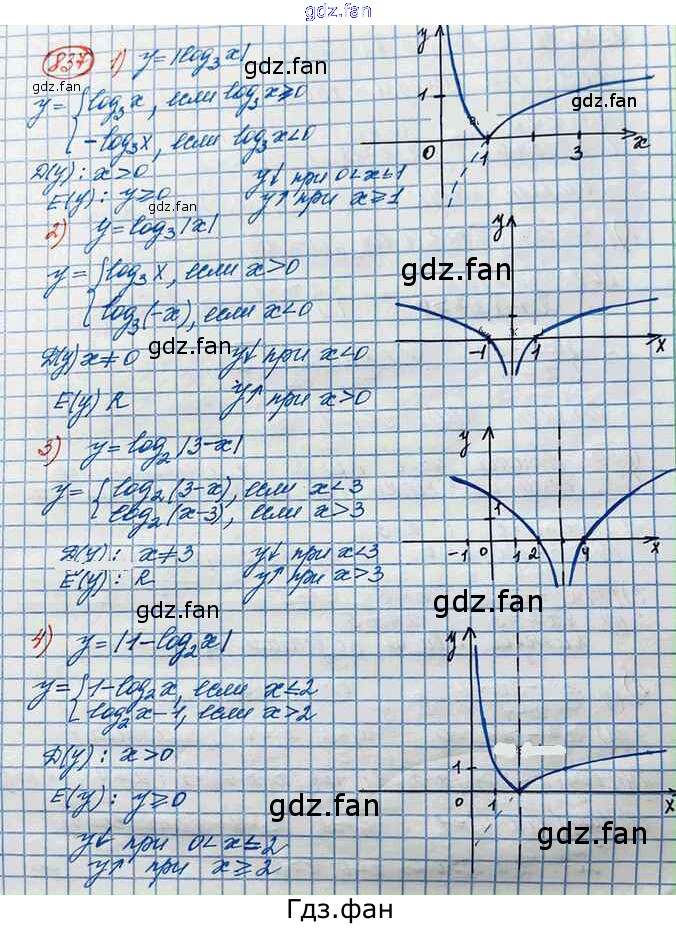 gdz.fan
837 1) y=|log₃x|
gdz.fan
gdz.fan
y={log₃x, если log₃x≥0
{-log₃x, если log₃x<0
gdz.fan
D(y): x>0 y↓ при 0<x<1
E(y): y≥0 y↑ при x≥1
gdz.fan
y
1
0 1 3 x
2) y=log₃|x|
y={log₃x, если x>0
{log₃(-x), если x<0
gdz.fan
gdz.fan
D(y) x≠0 y↓ при x<0
E(y) R y↑ при x>0
y
-1 1 x
3) y=log₂|3-x|
y={log₂(3-x), если x<3
{log₂(x-3), если x>3
D(y): x≠3 y↓ при x<3
E(y): R y↑ при x>3
gdz.fan
gdz.fan
y
1
-1 0 1 2 4 x
4) y=|1-log₂x|
y={1-log₂x, если x≤2
{log₂x-1, если x>2
D(y): x>0
E(y): y≥0
gdz.fan
gdz.fan
y↓ при 0<x≤2
y↑ при x≥2
y
1
0 1 x
Гдз.фан